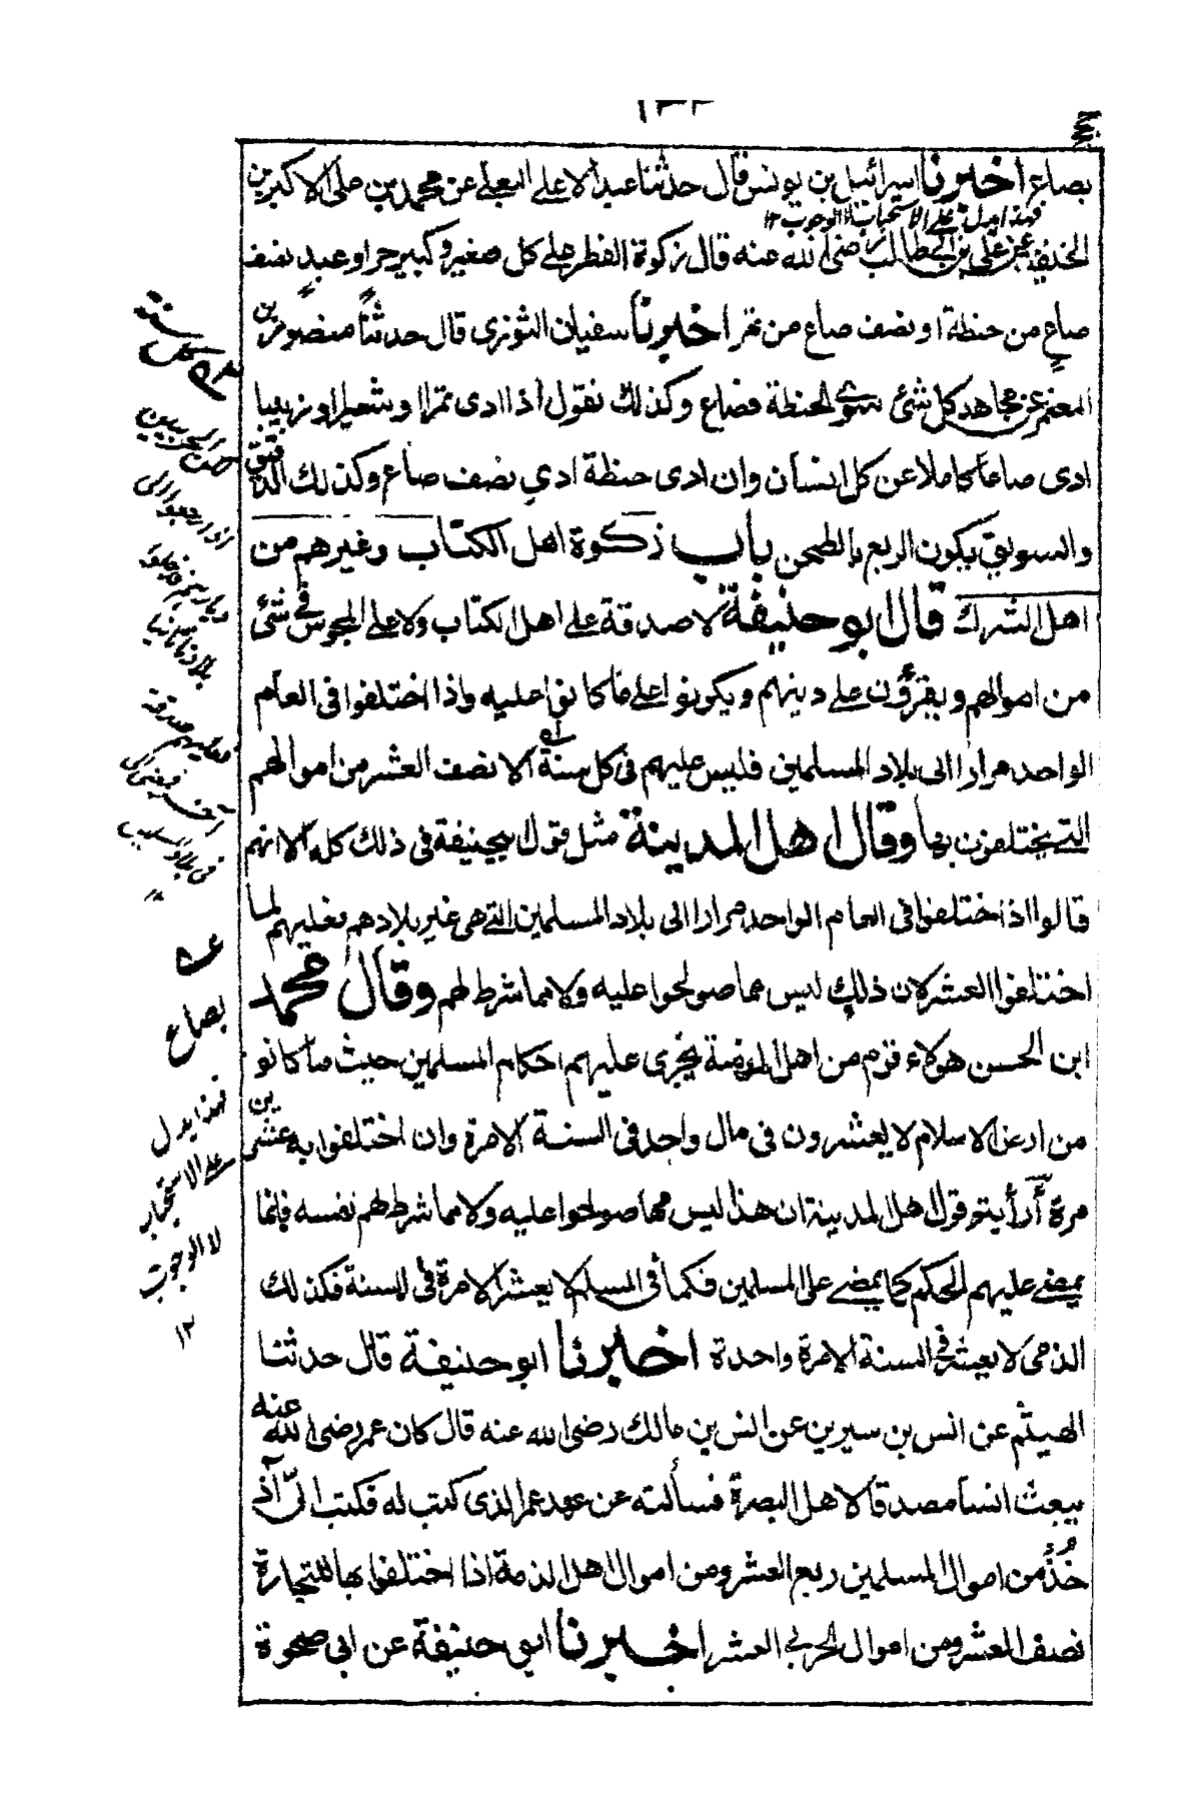 بصاع اخبرنا اسرائيل بن يونس قال حدثنا عبد الاعلى الثعلبي عن محمد بن على الاكبر بن
فهذا يدل على الاستحباب لا الوجوب ١٢
الحنفية عن علي بن ابي طالب رضى الله عنه قال زكوة الفطر على كل صغير وكبير حر او عبد نصف
صاع من حنطة او نصف صاع من تمر اخبرنا سفيان الثورى قال حدثنا منصور بن
المعتمر عن مجاهد كل شئ سوى الحنطة فصاع وكذلك نقول اذا ادى تمرا او شعيرا او زبيبا
ادى صاعا كاملا عن كل انسان وان ادى حنطة ادى نصف صاع وكذلك الدقيق
والسويق يكون الربع بالطحن باب زكوة اهل الكتاب وغيرهم من
اهل الشرك قال ابو حنيفة لا صدقة على اهل الكتاب ولا على المجوس فى شئ
من اموالهم ويقرون على دينهم ويكونوا على ما كانوا عليه واذا اختلفوا فى العام
الواحد مرارا الى بلاد المسلمين فليس عليهم فى كل سنة الا نصف العشر من اموالهم
التى يختلفون بها وقال اهل المدينة مثل قول ابيحنيفة فى ذلك كله الا انهم
قالوا اذا اختلفوا فى العام الواحد مرارا الى بلاد المسلمين التى هى غير بلادهم فعليهم لما
اختلفوا العشر لان ذلك ليس مما صولحوا عليه ولا مما شرط لهم وقال محمد
ابن الحسن هؤلاء قوم من اهل الذمة يجرى عليهم احكام المسلمين حيث ما كانوا
من ارض الاسلام لا يعشرون فى مال واحد فى السنة الا مرة وان اختلفوا به عشرين
مرة أرأيتم قول اهل المدينة ان هذا ليس مما صولحوا عليه ولا مما شرط لهم نفسه فانما
يمضى عليهم الحكم كما يمضى على المسلمين فكما ان المسلم لا يعشر الا مرة فى السنة فكذلك
الذمى لا يعشر فى السنة الا مرة واحدة اخبرنا ابو حنيفة قال حدثنا
الهيثم عن انس بن سيرين عن انس بن مالك رضى الله عنه قال كان عمر رضى الله عنه
يبعث انسا مصدقا لاهل البصرة فسألته عن عهد عمر الذى كتب له فكتب الى
خذ من اموال المسلمين ربع العشر ومن اموال اهل الذمة اذا اختلفوا بها للتجارة
نصف العشر ومن اموال الحربى العشر اخبرنا ابو حنيفة عن ابى صخرة
كل سنة
بلادنا
عليهم صدقة
بصاع
فهذا يدل
على الاستحباب
لا الوجوب
١٢